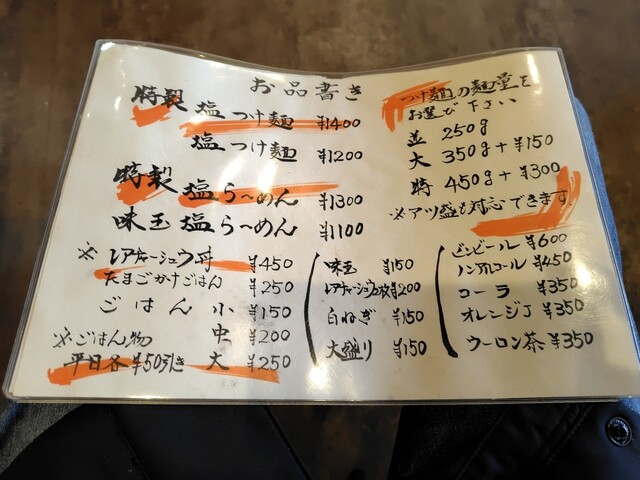 お品書き
特製塩つけ麺 ¥1400
塩つけ麺 ¥1200
特製塩ら〜めん ¥1300
味玉塩ら〜めん ¥1100
※レアチャーシュウ丼 ¥450
たまごかけごはん ¥250
ごはん 小 ¥150
中 ¥200
大 ¥250
※ごはん物
平日各¥50引き
つけ麺の麺量を
お選び下さい
並 250g
大 350g+¥150
特 450g+¥300
※アツ盛も対応できます
味玉 ¥150
レアチャーシュウ2枚 ¥200
白ねぎ ¥150
大盛り ¥150
ビンビール ¥600
ノンアルコール ¥450
コーラ ¥350
オレンジJ ¥350
ウーロン茶 ¥350